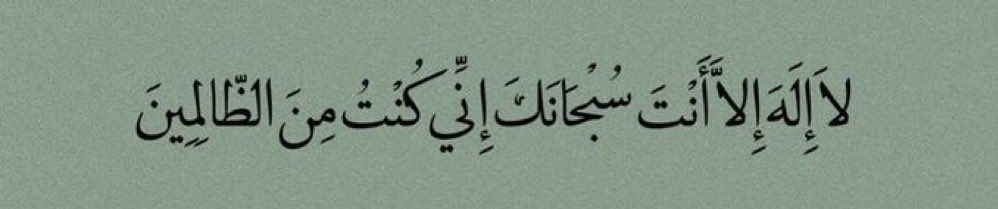 لاَ إِلَهَ إِلاَّ أَنْتَ سُبْحَانَكَ إِنِّي كُنْتُ مِنَ الظَّالِمِينَ